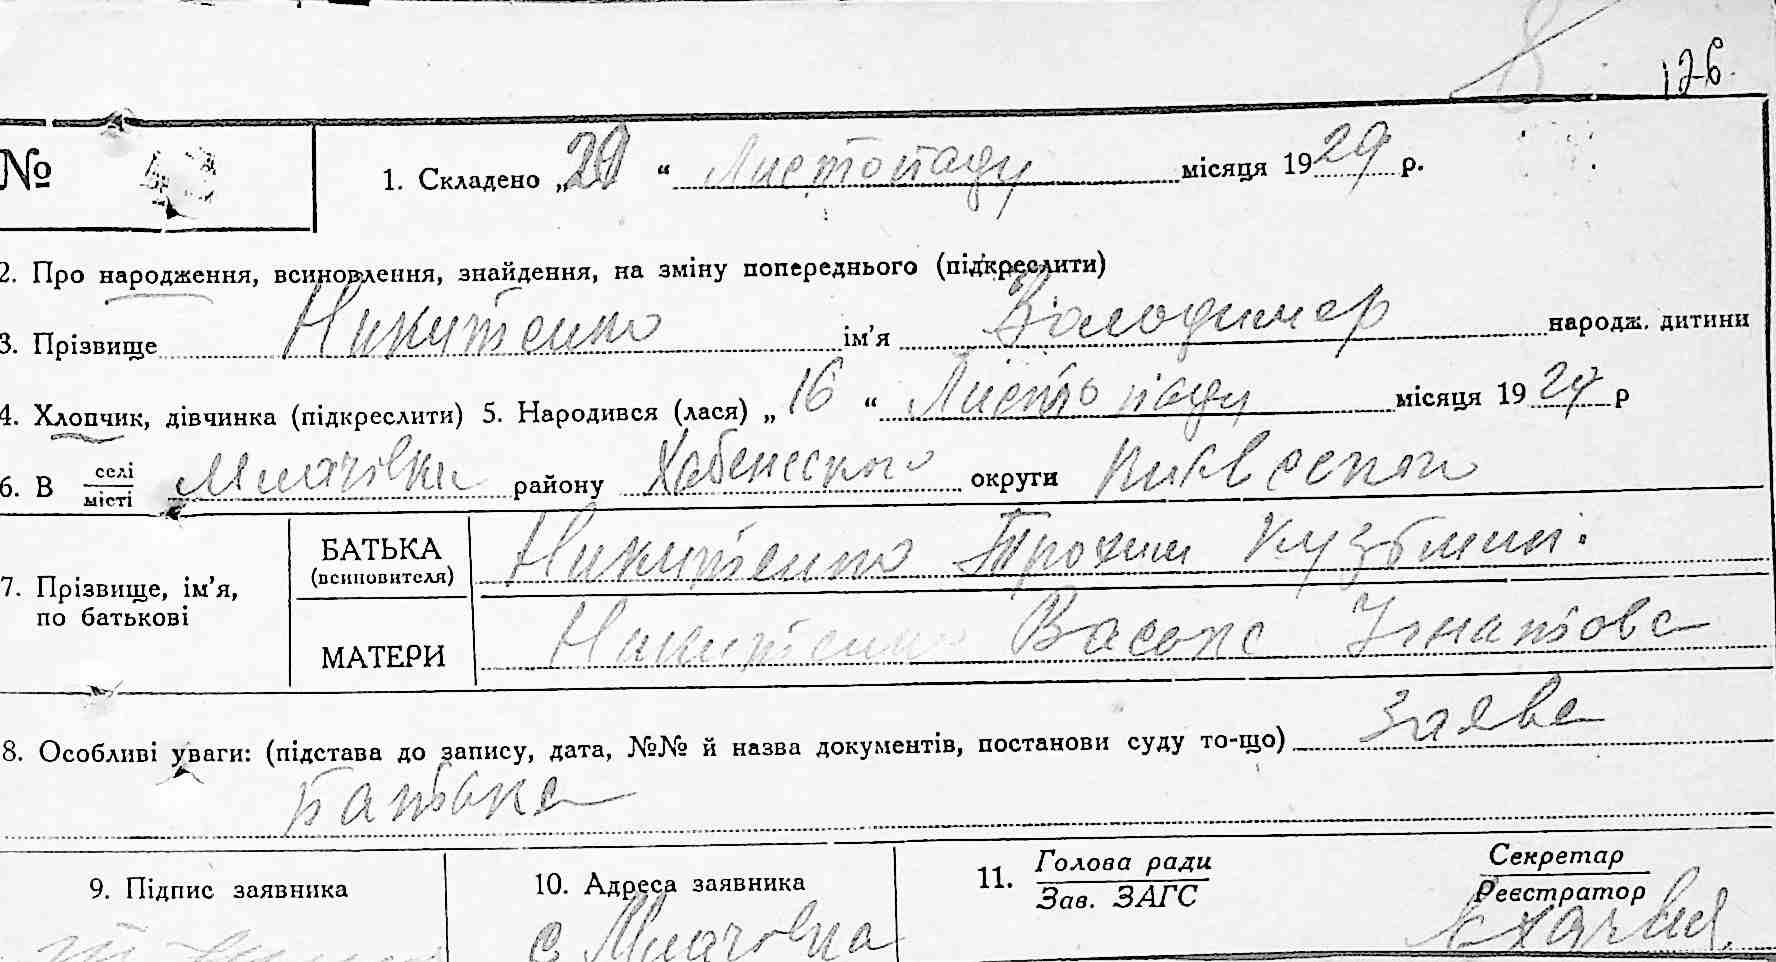 126.
№
1. Складено „29“ Листопаду місяця 1929 р.
2. Про народження, всиновлення, знайдення, на зміну попереднього (підкреслити)
3. Прізвище Никитенко ім’я Володимер народж. дитини
4. Хлопчик, дівчинка (підкреслити) 5. Народився (лася) „16“ Листопаду місяця 1929 р
6. В селі місті Мла району Хабенського округи
7. Прізвище, ім’я, по батькові
БАТЬКА (всиновителя) Никитенко Трохим Кузьмин.
МАТЕРИ Никитенко Игнатова
8. Особливі уваги: (підстава до запису, дата, №№ й назва документів, постанови суду то-що) Заява
батька
9. Підпис заявника
10. Адреса заявника
с
11. Голова ради Зав. ЗАГС
Секретар Реєстратор